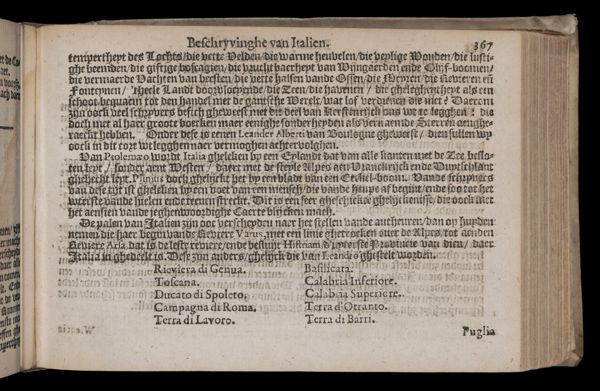 Beschryvinghe van Italien. 367
tempertheyt des Lochts/die vette Velden/die warme heuvelen/die veylige Wouden/die lusti-
ghe beemden/die giftige boscagien/die vruchtbaerheyt van Wijngaerden ende Olijf-boomen/
die vermaerde Vachten van beesten/die vette halsen van Ossen/die Meyren/die Revieren en
Fonteynen/ 'theele Landt door vloeyende/die Zeen/die havenen/ die gheleghentheyt als een
schoot bequaem tot den handel met de gantsche Werelt/wat lof verdienen die niet? Daerom
zijn oock veel schryvers besich gheweest met dit deel van Kerstenrijck ons wt te legghen: die
doch met al haer groote boecken maer eenighe sonderheyden als van aen de Sterren aenghe-
raeckt hebben. Onder dese is eenen Leander Alberti van Boulogne gheweest/ dien sullen wy
oock in dit cort wtlegghen naer vermoghen achtervolghen.
Van Ptolemæo wordt Italia gheleken by een Eylandt dat van alle kanten met de Zee beslo-
ten leyt/ sonder aent Westen/ daert met de steyle Alpes aen Vranckrijck ende Duytschlant
ghehecht leyt. Plinius doch ghelijckt het by een bladt van een Eeckel-boom. Vande schryvers
van dese tijt ist gheleken by een voet van een mensch/die vande heupe af begint/ende soo tot het
wterste vande hielen ende teenen streckt. Dit is een seer gheschickte ghelijckenisse/die oock met
het aensien vande jeghenwoordighe Caerte blijcken mach.
De palen van Italien zijn oot verscheyden naer het stellen vande autheuren/dan op huyden
nemen die haer begin vande Reviere Varus, met een linie ghetrocken over de Alpes, tot aen den
Reviere Arsa dat is de leste reviere/ende besluyt Histriam d'wterste Provincie van dien/ daer
Italia in ghedeelt is. Dese zijn anders/ghelijck die van Leandro ghestelt worden.
Rieviera di Genua.
Toscana.
Ducato di Spoleto.
Campagna di Roma.
Terra di Lavoro.
Basilicata.
Calabria Inferiore.
Calabria Superiere.
Terra d'Otranto.
Terra di Barri.
Puglia